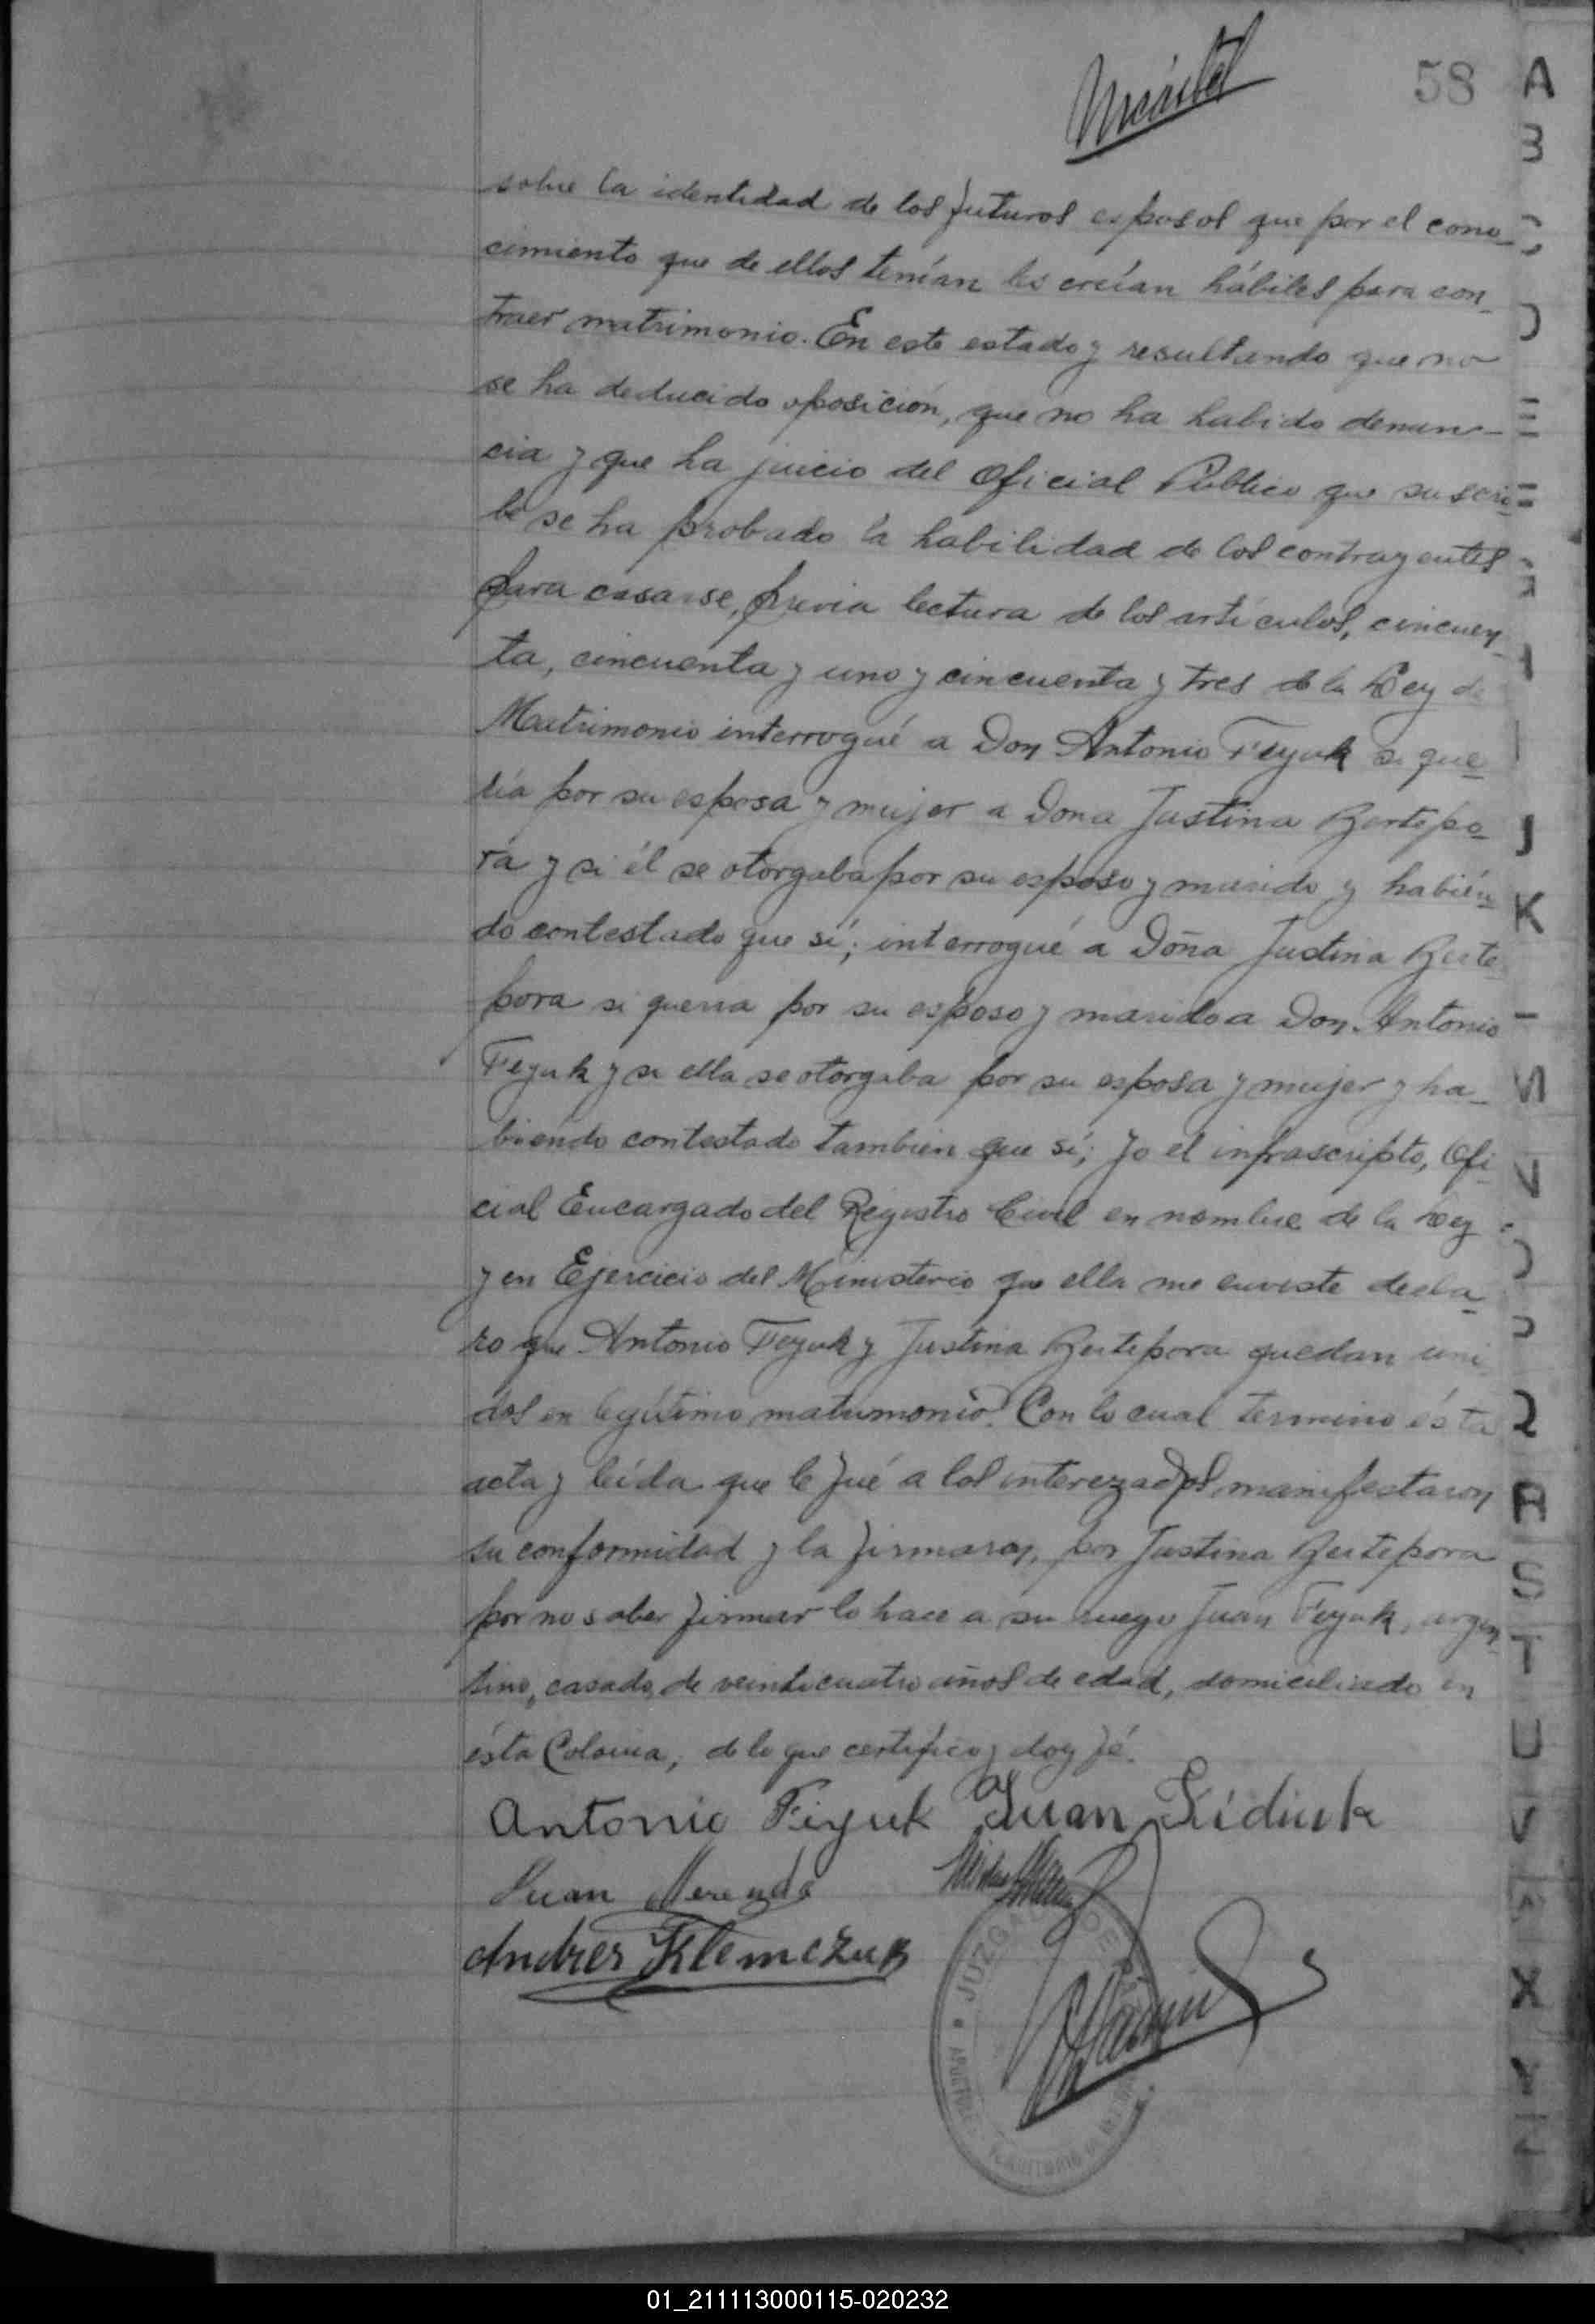 58
sobre la identidad de los futuros esposos que por el cono-
cimiento que de ellos tenían les creían hábiles para con-
traer matrimonio. En este estado y resultando que no
se ha deducido oposición, que no ha habido denun-
cia y que ha juicio del Oficial Público que suscri-
be se ha probado la habilidad de los contrayentes
para casarse, previa lectura de los artículos, cincuen-
ta, cincuenta y uno y cincuenta y tres de la Ley de
Matrimonio interrogué a Don Antonio Feyuk si que-
ría por su esposa y mujer a Dona Justina Bertepo-
ra y si él se otorgaba por su esposo y marido y habién-
do contestado que sí; interrogué a Doña Justina Berte
pora si queria por su esposo y marido a Don Antonio
Feyuk y si ella se otorgaba por su esposa y mujer y ha-
biendo contestado tambien que sí; yo el infrascripto, Ofi-
cial Encargado del Registro Civil en nombre de la Ley
y en Ejercicio del Ministerio que ella me enviste decla-
ro que Antonio Feyuk y Justina Bertepora quedan uni-
dos en legítimo matrimonio. Con lo cual termino ésta
acta y leída que le fué a los interezados, manifestaron
su conformidad y la firmaron, por Justina Bertepora
por no saber firmar lo hace a su ruego Juan Feyuk, argen-
tino, casado, de veinticuatro años de edad, domiciliado en
ésta Colonia; de lo que certifico y doy fé.
Antonio Feyuk Juan Fidiuk
Juan
Andres Klemczuk
JUZGADO DE PAZ
TERRITORIO DE
A
B
C
D
E
F
G
H
I
J
K
L
M
N
O
P
Q
R
S
T
U
V
W
X
Y
Z
01_211113000115-020232